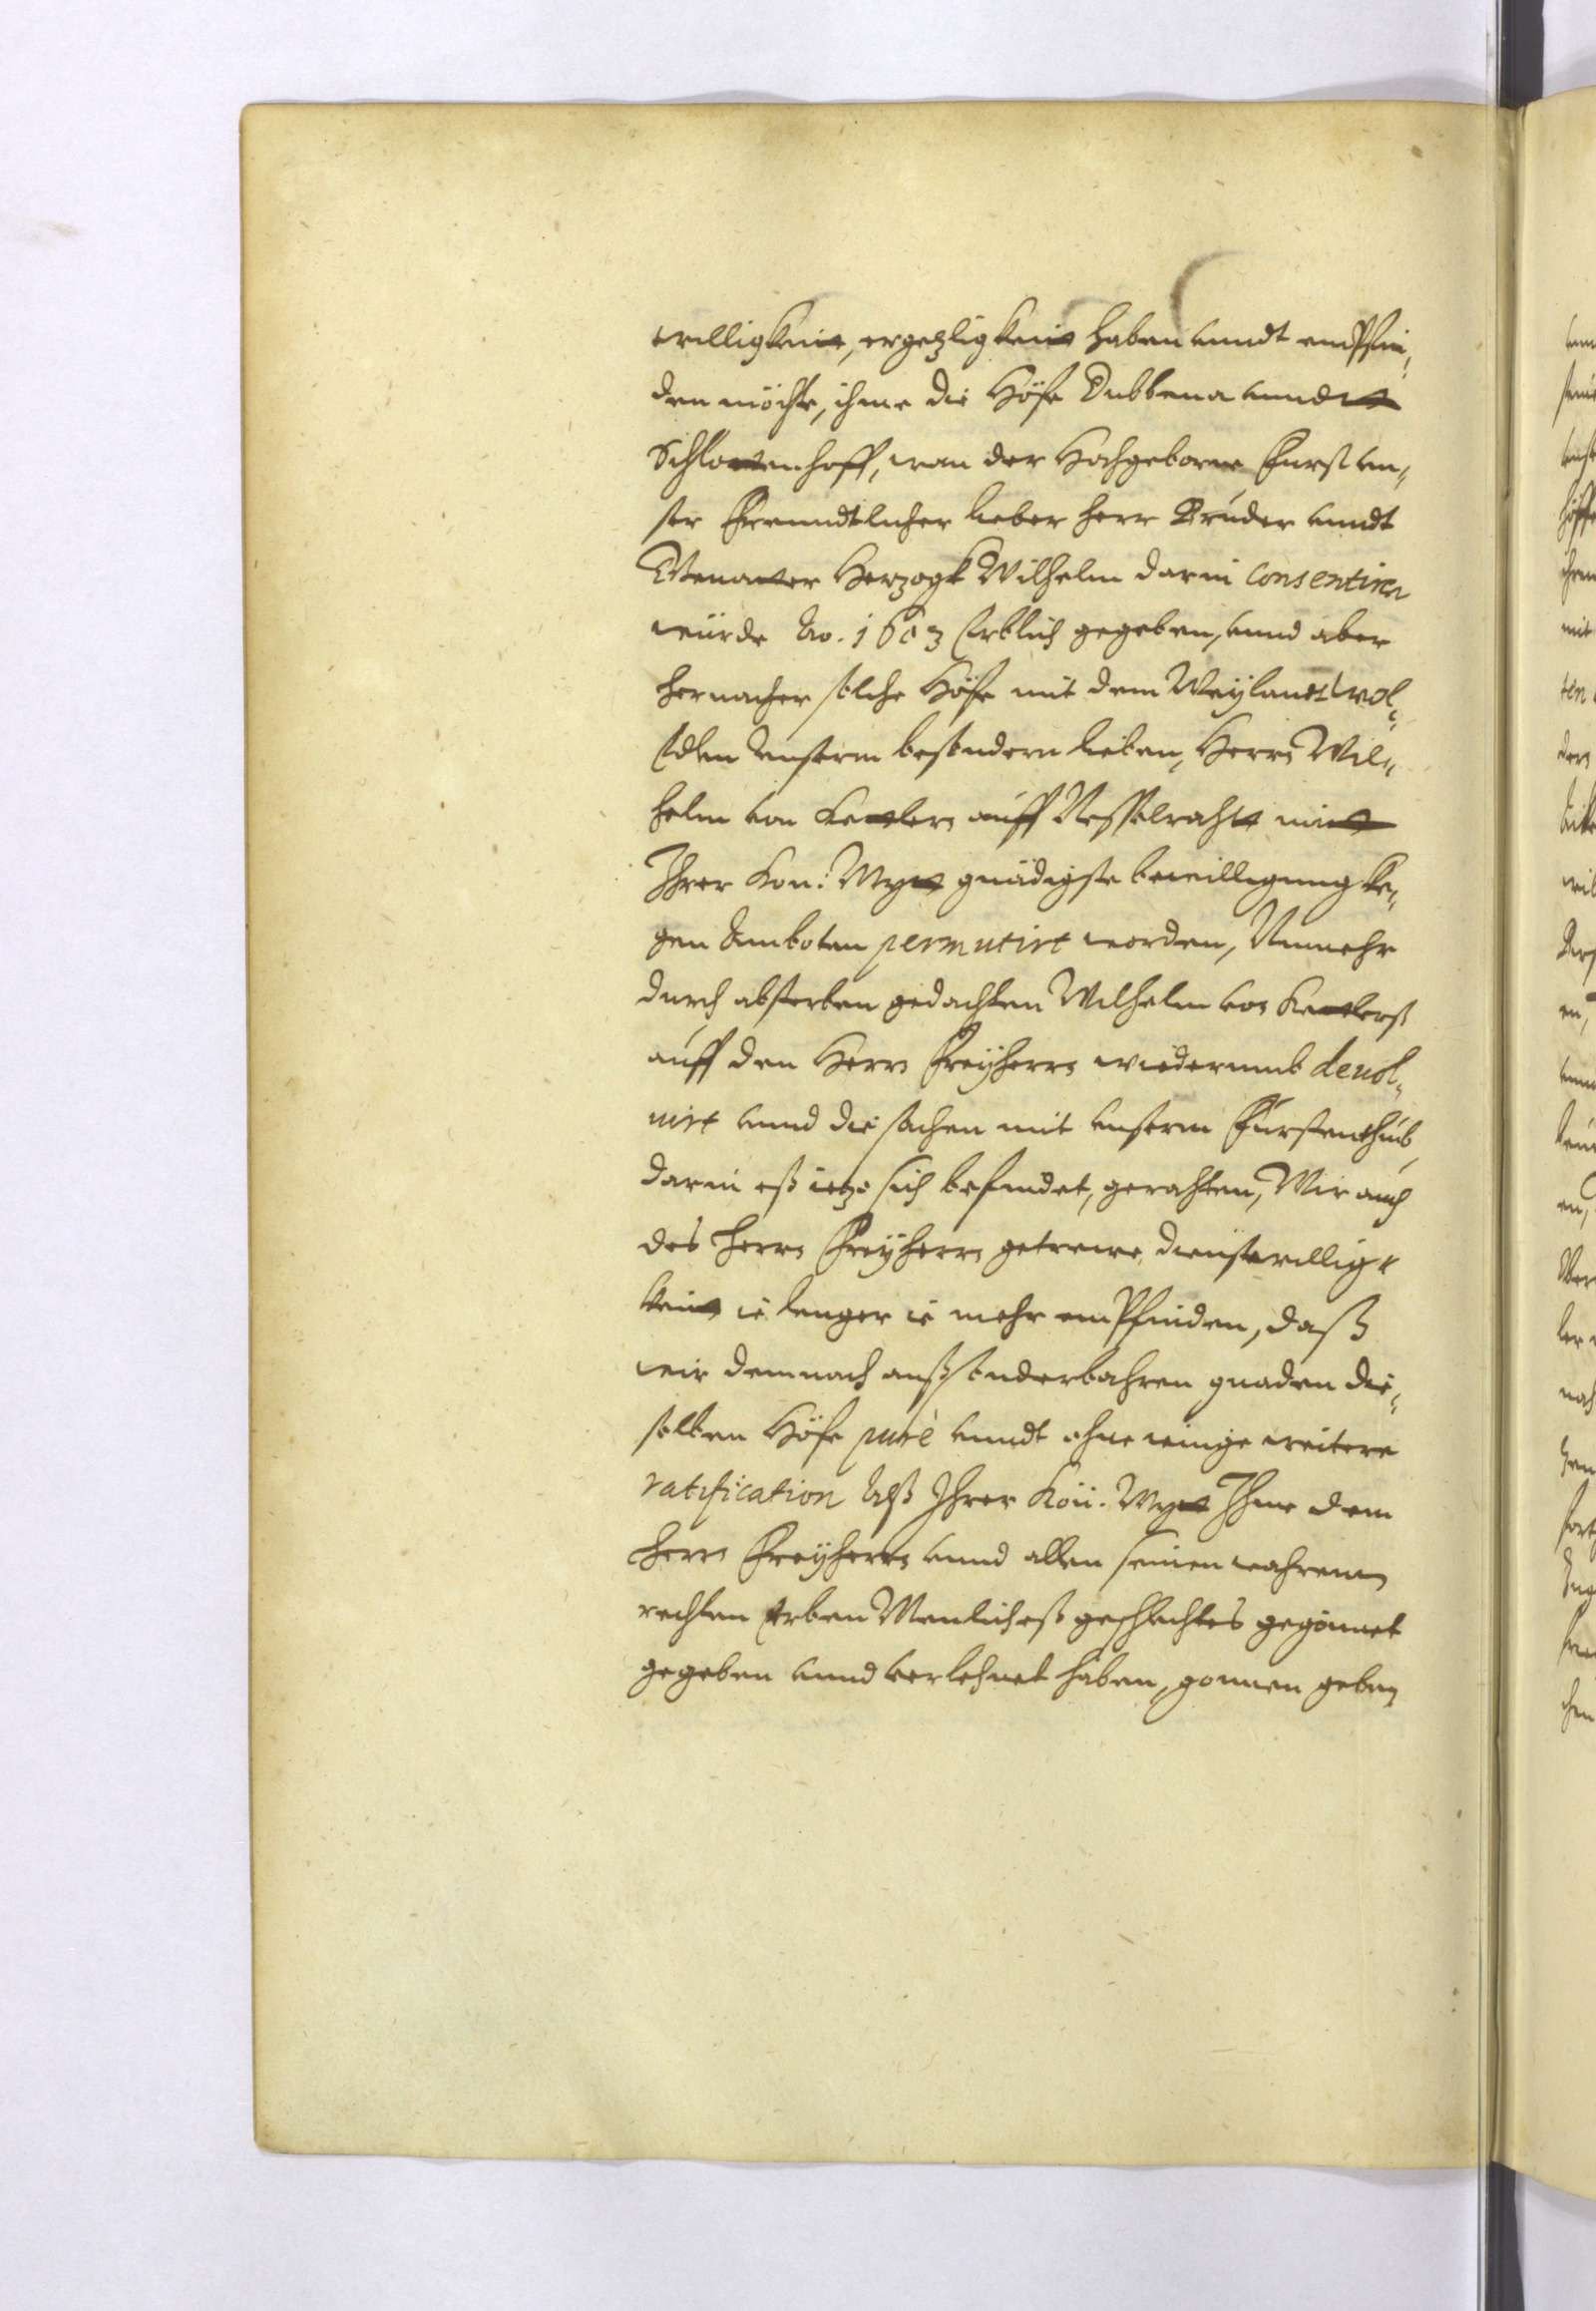 willigkeitt, ergetzligkeitt haben unndt empfin¬
den möchte, ihme die Höfe Dubbena unndtt
Schlottenhoff, wan der Hochgeborne Furst un¬
ser Freundtlicher lieber Herr Bruder unndt
Gevatter Herzogk Wilhelm darin consentiren
würde Ao. 1603 Erblich gegeben, unnd aber
hernacher solche Höfe mit dem Weylandt Wol¬
Edlen Unserm besondern lieben, Herrn Wil¬
helm von Kettlern auff Nesselrahtt mitt
Ihrer Kon: Maytt gnädigste bewilligung ke¬
gen Amboten permutirt worden, Nunmehr
durch absterben gedachten Wilhelm von Kettlerß
auff den Herrn Freyherrn wiederumb devol¬
virt unnd die sachen mit unserm Fürstenthub,
darin eß ietzo sich befindet, gerahten, Wir auch
des Herrn Freyherrn getrewe, dienstwillig¬
keitt ie lenger ie mehr empfinden, daß
wir demnach auß sonderbahren gnaden die¬
selben Höfe purè unndt ohne einige weitere
ratification Alß Ihrer Kön. Maytt Ihme dem
Herrn Freyherrn unnd allen seinen wahrenn
rechten Erben Menlicheß geschlechtes gegönnet
gegeben unnd verlehnet haben, gönnen geben